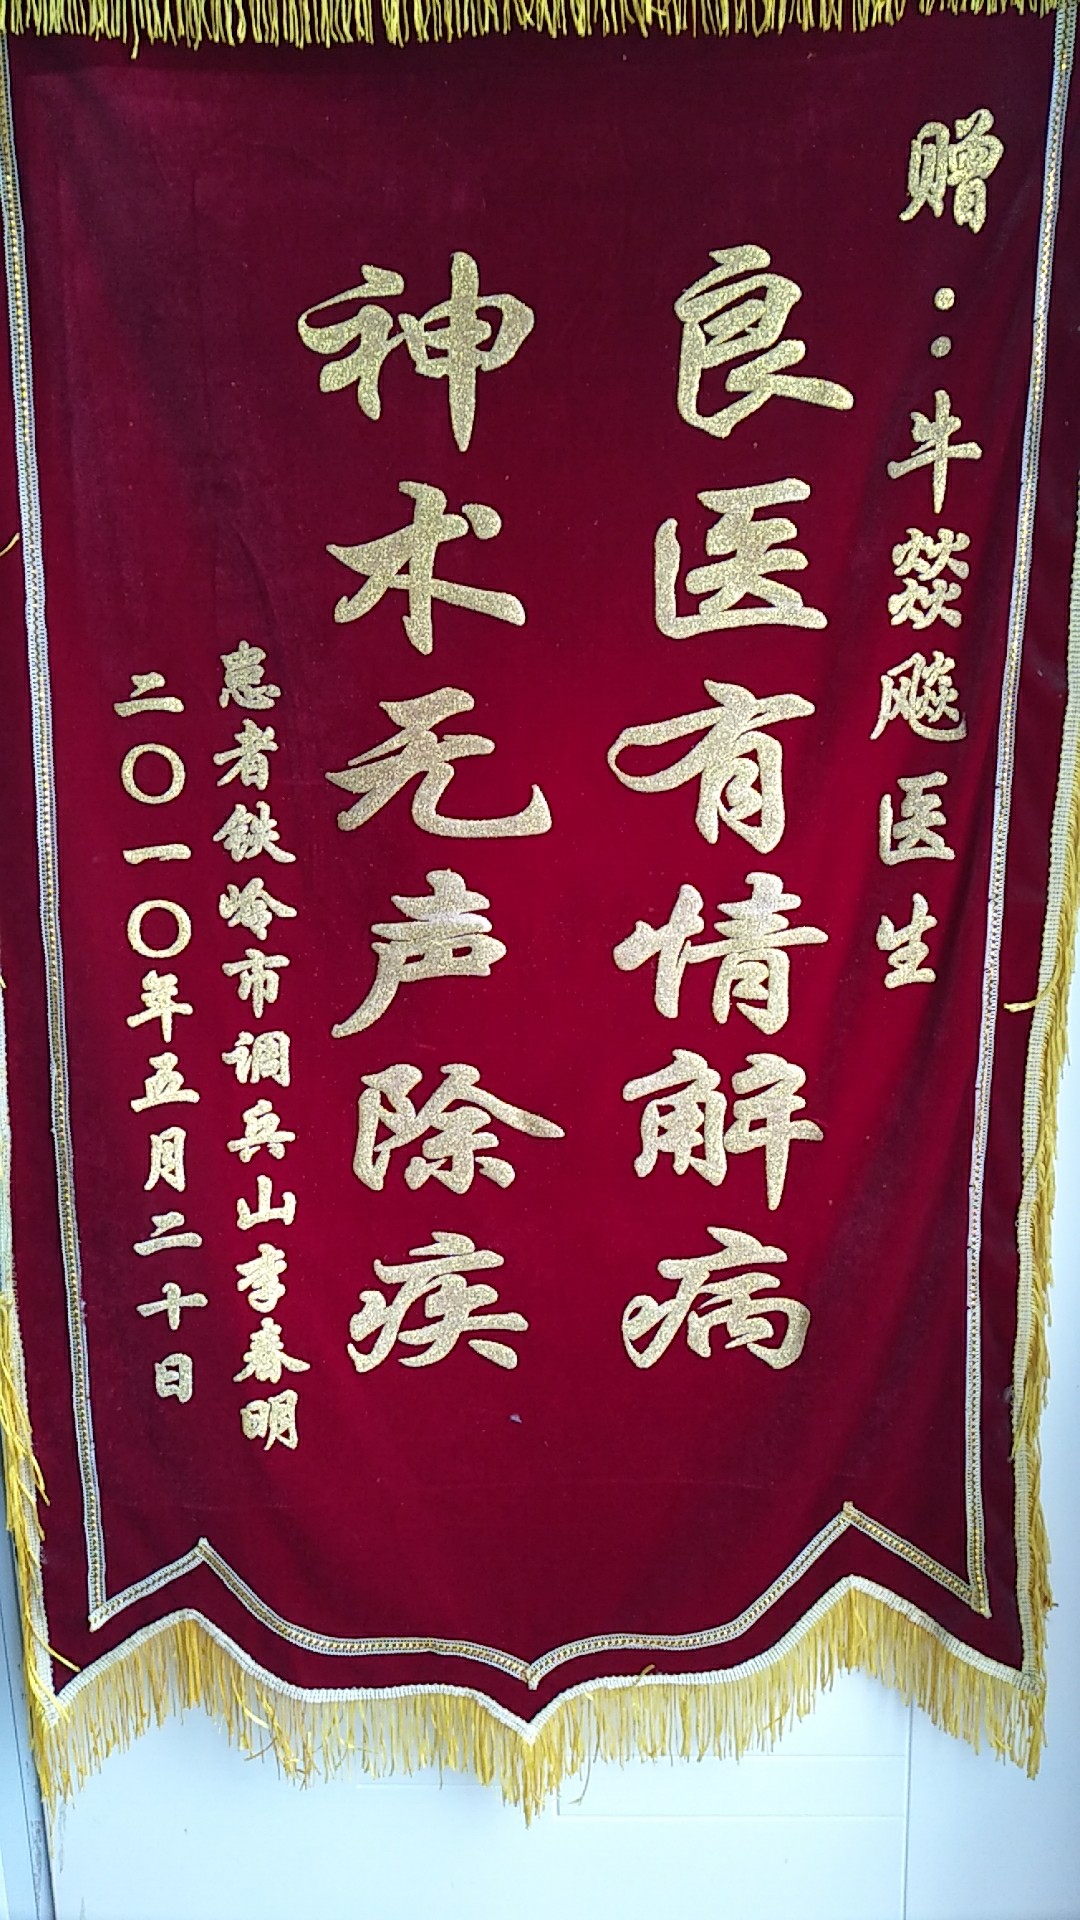 赠：牛燚飚医生
良医有情解病
神术无声除疾
患者铁岭市调兵山李春明
二〇一〇年五月二十日